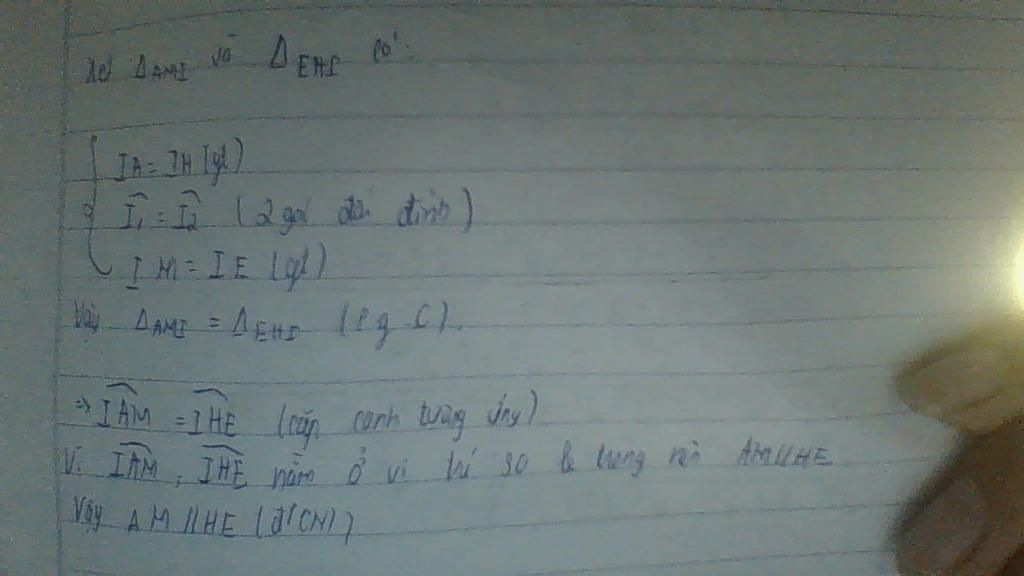 Xét Δ AMI và Δ EHI có:
IA = IH (gt)
Î1 = Î2 (2 góc đối đỉnh)
IM = IE (gt)
Vậy Δ AMI = Δ EHI (c g c).
=> IAM = IHE (cặp canh tương ứng)
Vì IAM, IHE nằm ở vị trí so le trong nên AM//HE
Vậy AM//HE (đfCM)